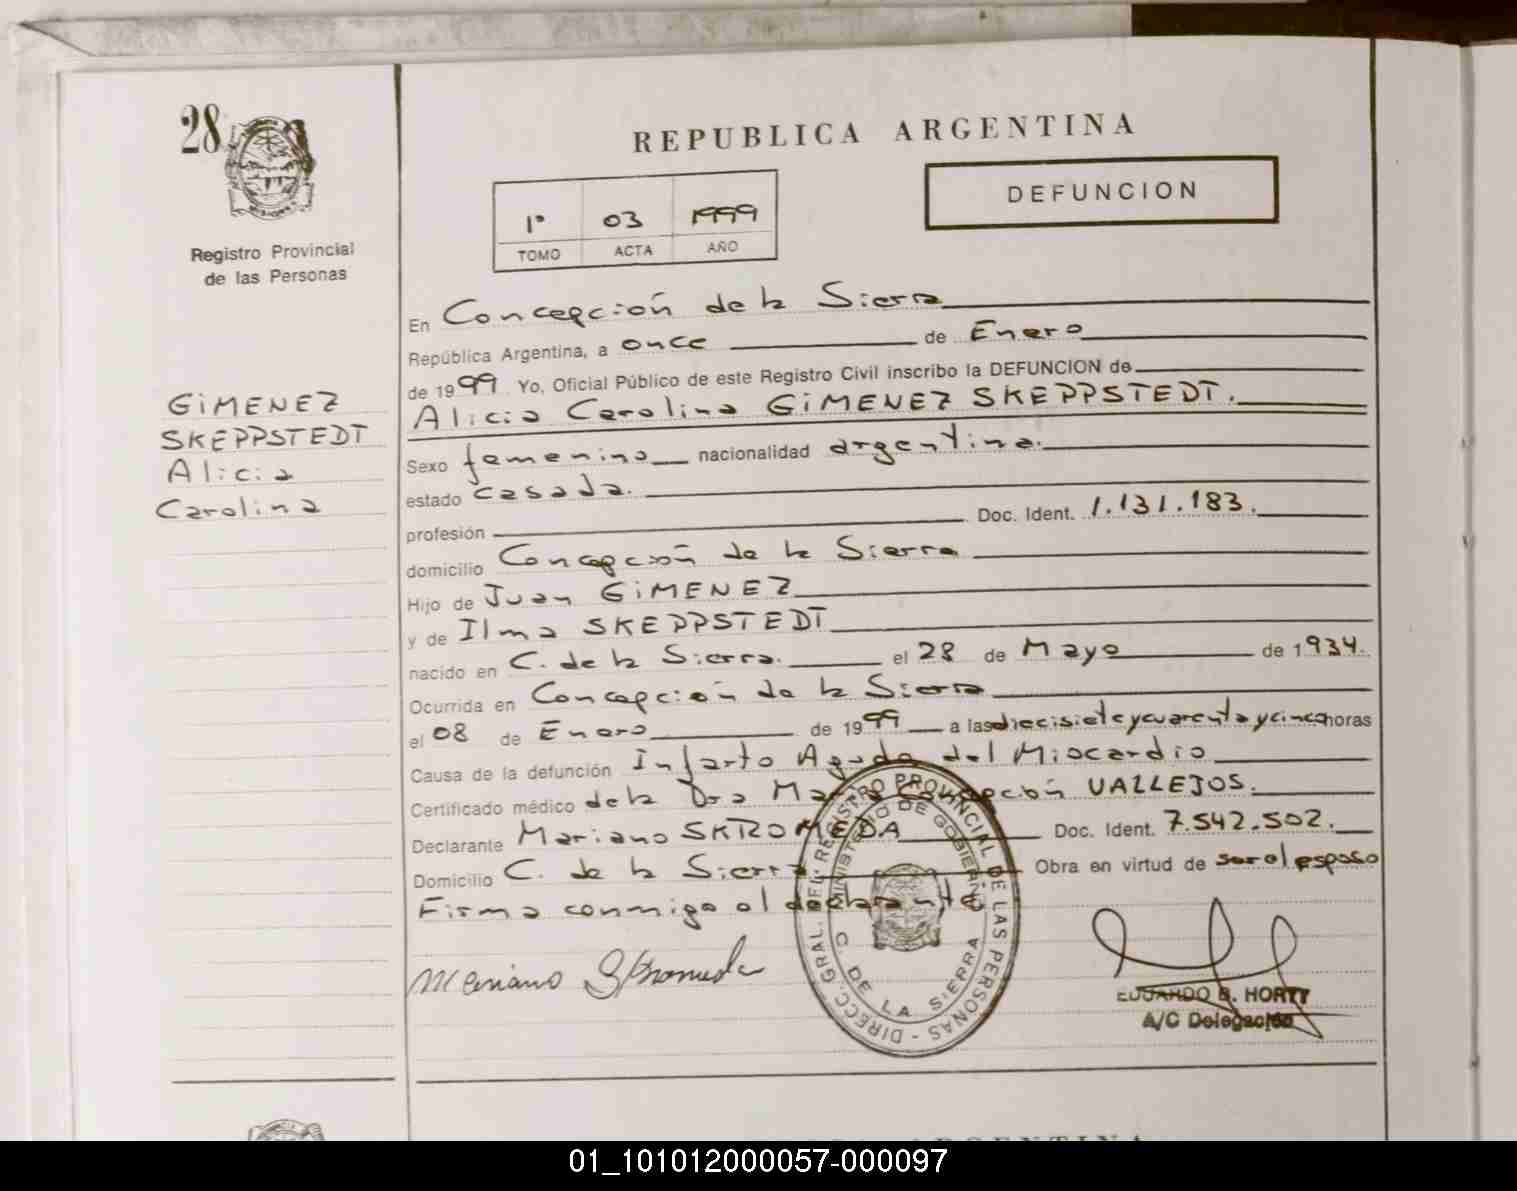 28
MISIONES
Registro Provincial
de las Personas
REPUBLICA ARGENTINA
DEFUNCION
1° 03 1999
TOMO ACTA AÑO
GIMENEZ
SKEPPSTEDT
Alicia
Carolina
En Concepción de la Sierra
República Argentina, a once de Enero
de 1999. Yo, Oficial Público de este Registro Civil inscribo la DEFUNCION de
Alicia Carolina GIMENEZ SKEPPSTEDT.
Sexo femenino nacionalidad argentina.
estado casada.
profesión Doc. Ident. 1.131.183.
domicilio Concepción de la Sierra
Hijo de Juan GIMENEZ
y de Ilma SKEPPSTEDT
nacido en C. de la Sierra. el 28 de Mayo de 1934.
Ocurrida en Concepción de la Sierra
el 08 de Enero de 1999 a las diecisiete y cuarenta y cinco horas
Causa de la defunción Infarto Agudo del Miocardio
Certificado médico de la Dra María Concepción VALLEJOS.
Declarante Mariano SKROMEDA Doc. Ident. 7.542.502.
Domicilio C. de la Sierra Obra en virtud de ser el esposo
Firma conmigo el declarante
Mariano Skromeda
DIRECC. GRAL. DEL REGISTRO PROVINCIAL DE LAS PERSONAS -
MINISTERIO DE GOBIERNO
C. DE LA SIERRA
EDUARDO B. HORTT
A/C Delegación
01_101012000057-000097